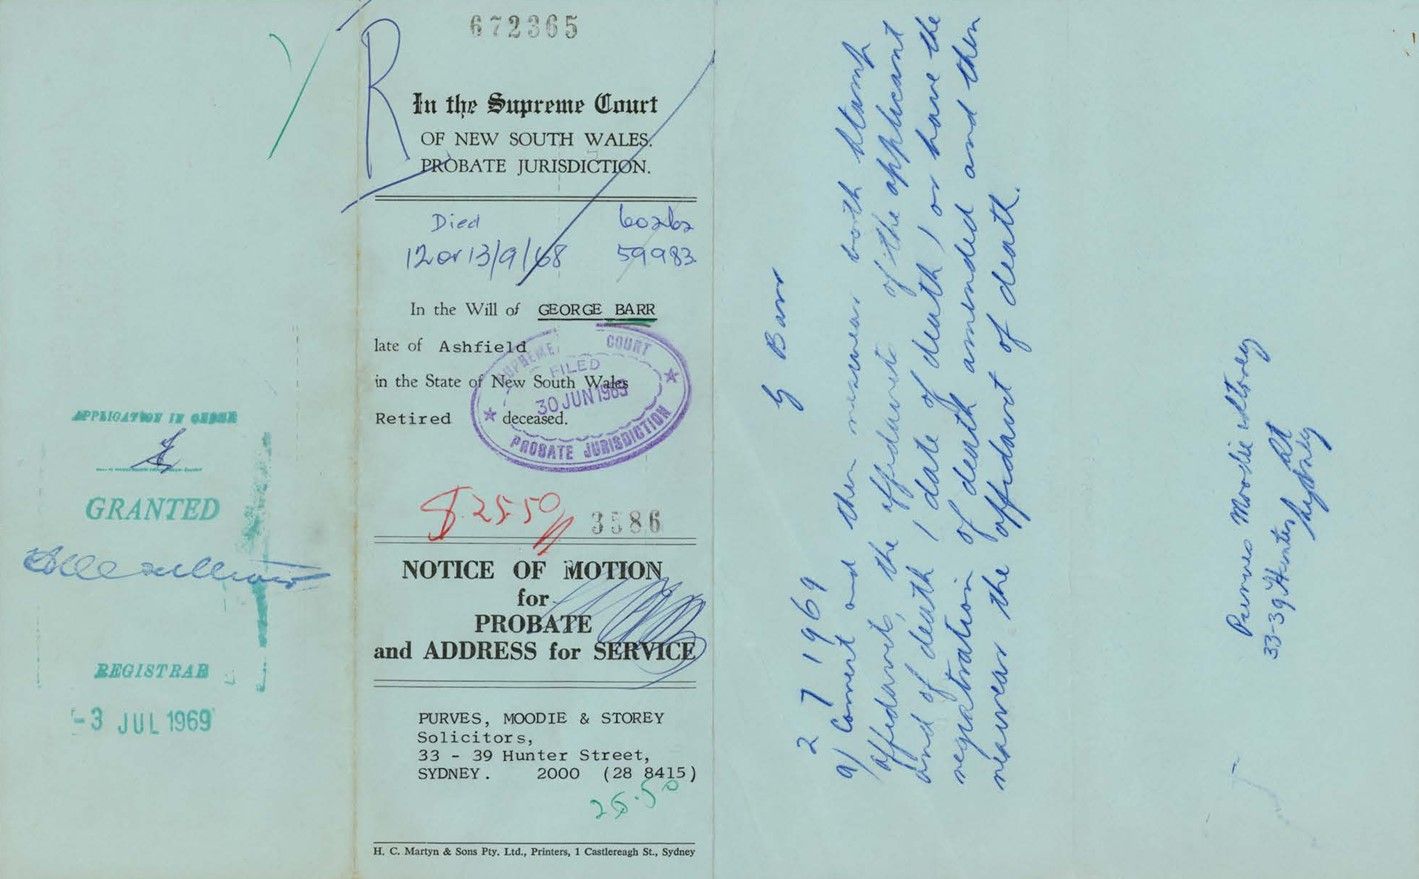 672365
R
In the Supreme Court
OF NEW SOUTH WALES.
PROBATE JURISDICTION.
Died 60262
12 or 13/9/68 59983
In the Will of GEORGE BARR
late of Ashfield
in the State of New South Wales
Retired deceased.
SUPREME COURT
FILED
30 JUN 1969
PROBATE JURISDICTION
$25.50
3586
NOTICE OF MOTION
for
PROBATE
and ADDRESS for SERVICE
PURVES, MOODIE & STOREY
Solicitors,
33 - 39 Hunter Street,
SYDNEY. 2000 (28 8415)
25.50
H. C. Martyn & Sons Pty. Ltd., Printers, 1 Castlereagh St., Sydney
APPLICATION IN ORDER
GRANTED
REGISTRAR
-3 JUL 1969
G Barr
2 7 1969
a) Correct and then reswear both stamp
affidavit, the affidavit of the applicant
and of death (date of death) or have the
registration of death amended and then
reswear the affidavit of death.
Purves Moodie & Storey
33-39 Hunter St
Sydney